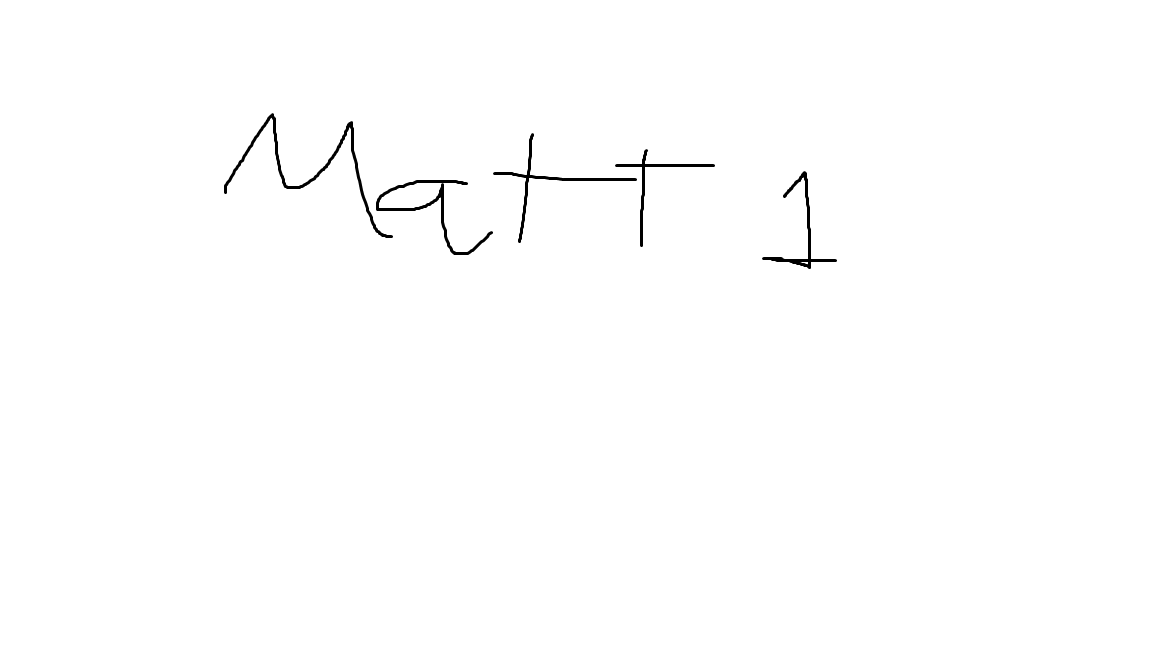 Matt 1